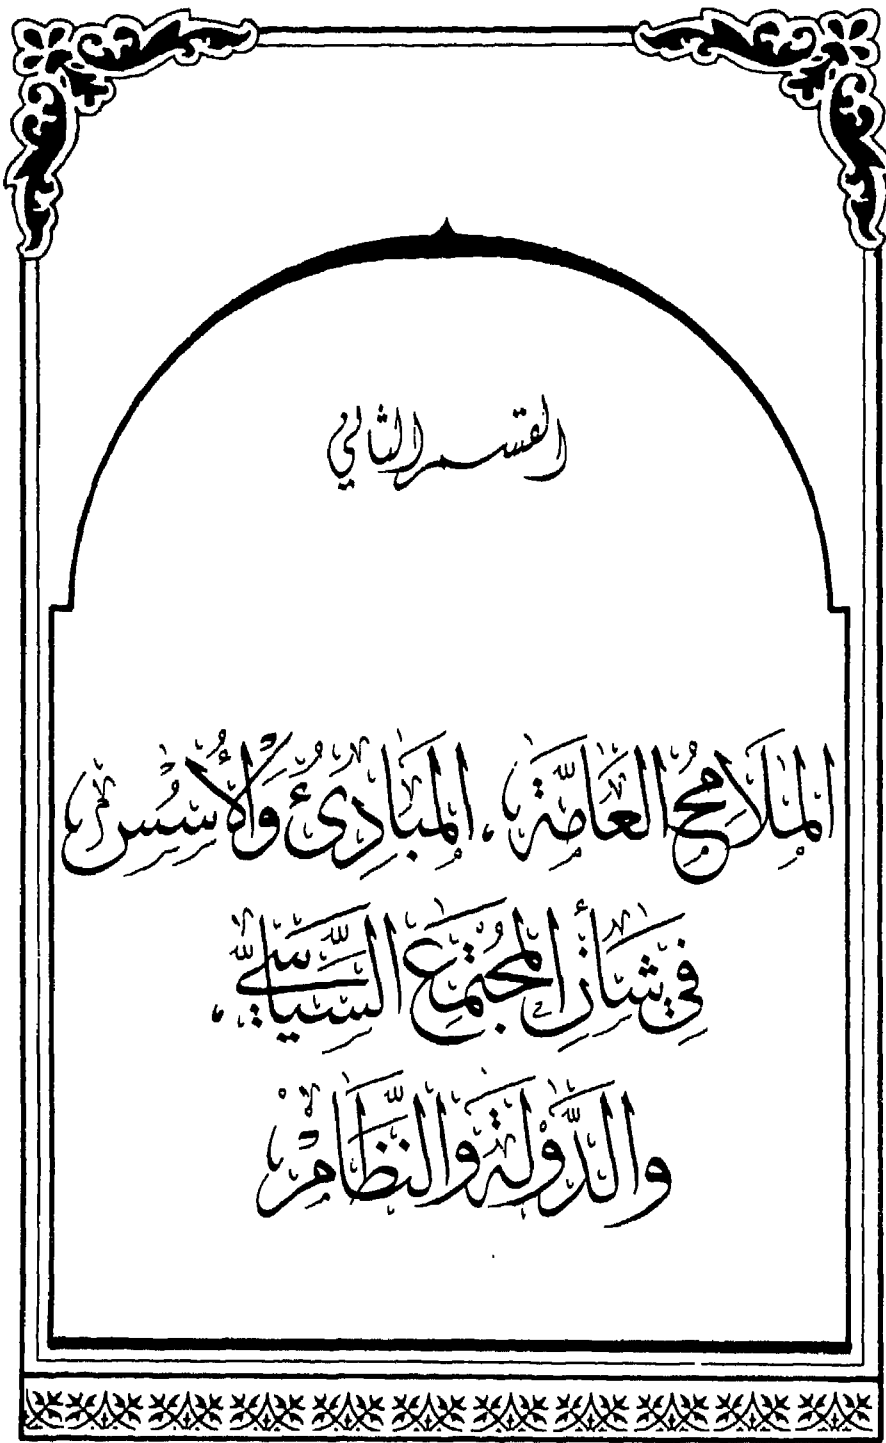 القسم الثاني
الملَامِحُ العَامَّة، المبَادِئُ وَالأُسُس
فِي شَأنِ المجُتمَع السِّيَاسَيّ،
والدَّوْلة وَالنِّظَام